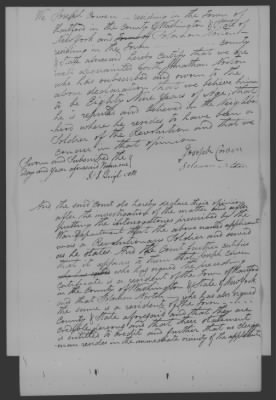 We Joseph Cowen residing in the Town of
Hartford in the County of Washington & State of
New York and Solomon Norton
residing in the Town County
& State aforesaid hereby certify that we are
well acquainted with Jonathan Norton
who has subscribed and sworn to the
above declaration that we believe him
to be Eighty Nine Years of age, that
he is reputed and believed in the neighbor
hood where he resides to have been a
Soldier of the Revolution and that we
concur in that opinion
Sworn and Subscribed the Joseph Cowen
day and year aforesaid Solomon Norton
And the said Court do hereby declare their opinion
after the investigation of the matter and after
putting the interrogatories prescribed by the
War Department that the above named applicant
was a Revolutionary Soldier and served
as he states And the Court further certifies
that it appears to them that Joseph Cowen
who has signed the preceding
certificate is a resident of the Town of Hartford
in the County of Washington & State of New York
and that Solomon Norton who has also signed
the same is a resident of the Town
County & State aforesaid and that they are
credible persons and that their statement
is entitled to credit and further that no clergy
man resides in the immediate vicinity of the applicant